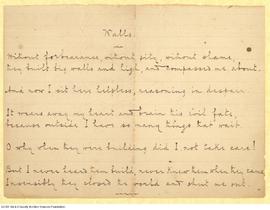 Walls.
Without forbearance, without pity, without shame,
they built big walls and high, and compassed me about.
And now I sit here helpless, reasoning in despair.
It wears away my heart and brain this evil fate,
because outside I have so many things that wait.
O why when they were building did I not take care!
But I never heard them build, never knew when they came.
Insensibly they closed the world and shut me out.
Onassis Foundation